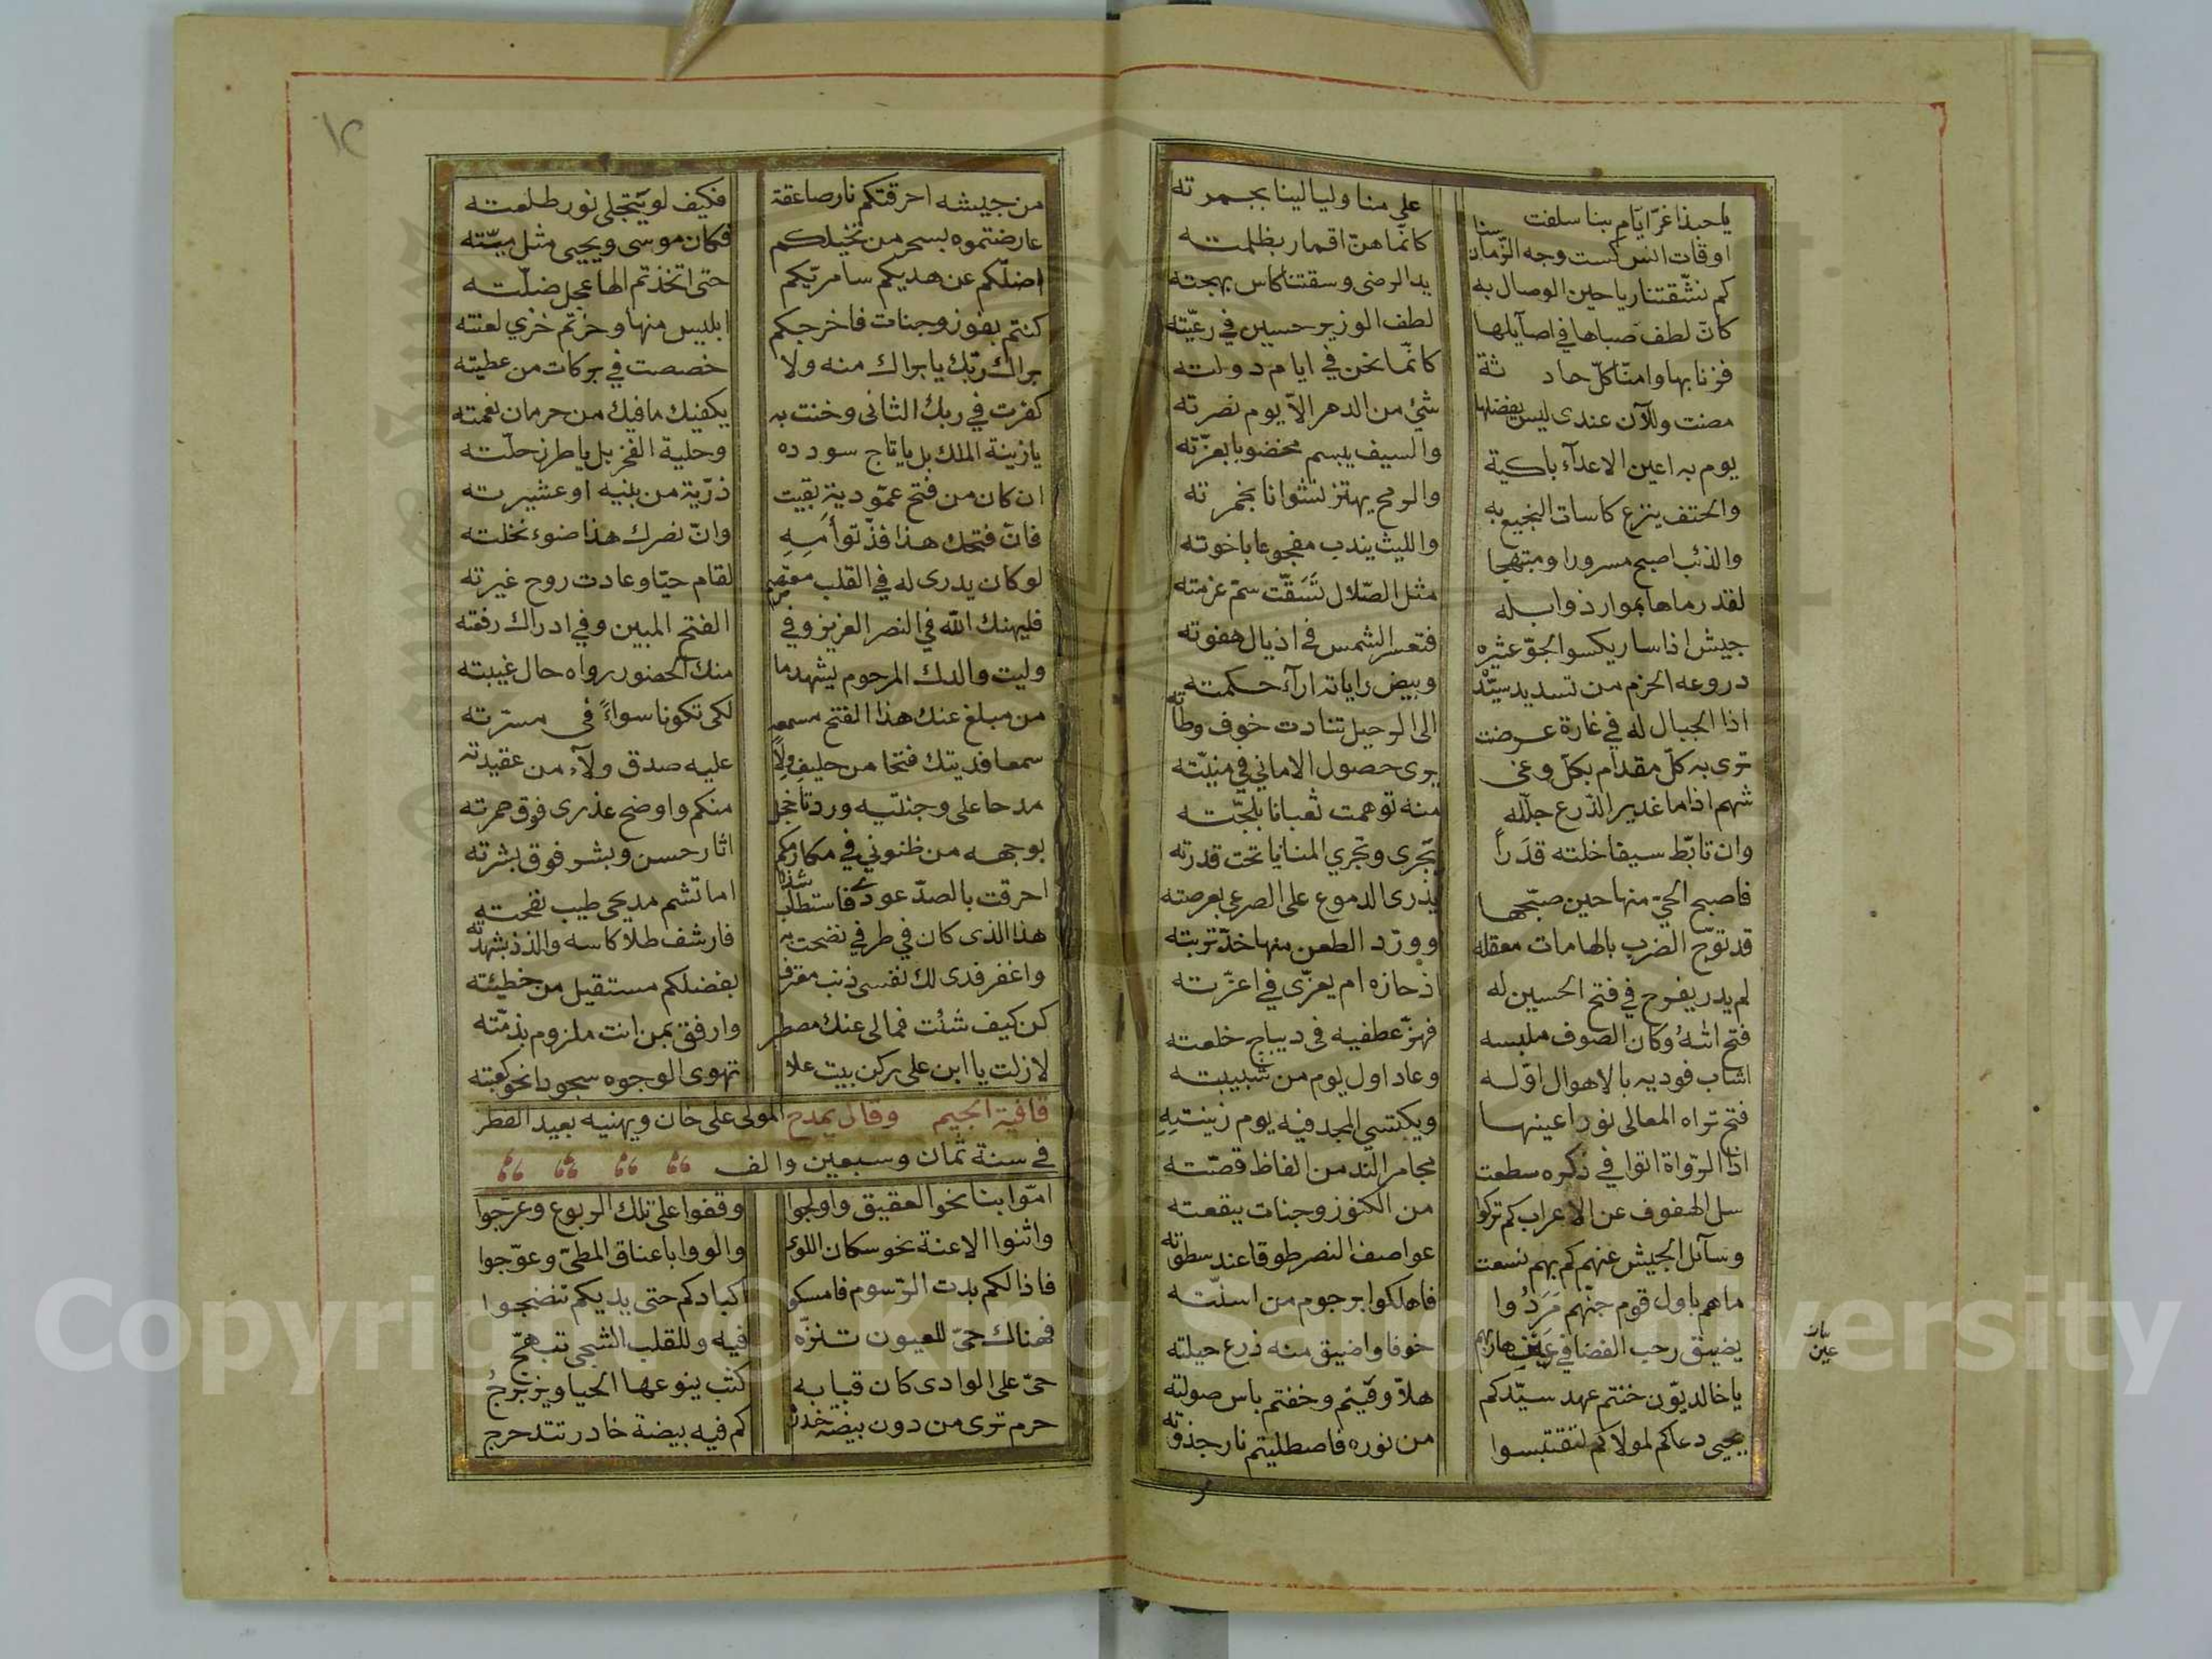 يا حبذا غرّ ايّام بنا سلفت على منا وليالينا بجمرته
اوقات انس كست وجه الزمان سنا كانّما هنّ اقمار بظلمته
كم نشّقتنا رياحين الوصال به يد الرضى وسقتنا كاس بهجته
كانّ لطف صباها في اصآيلها لطف الوزير حسين في رعيّته
فزنا بها وامنّا كلّ حادثة كانّما نحن في ايام دولته
مضت وللآن عندى ليس يفضلها شئ من الدهر الّا يوم نصرته
يوم به اعين الاعدآء باكية والسيف يبسم مخضوبا بعزّته
والحتف ينزع كاسات النجيع به والرمح يهتز نشوانا بخمرته
والذئب اصبح مسرورا ومبتهجا والليث يندب مفجوعا باخوته
لقد رماها بموار ذوابله مثل الصّلال تَسَقّت سمّ عزمته
جيش اذا سار يكسو الجوّ عثيره فتعسر الشمس في اذيال هفوته
دروعه الحزم من تسديد سيّده وبيض راياته ارآء حكمته
اذا الجبال له في غارة عرضت الى الرحيل تنادت خوف وطأته
ترى به كلّ مقدام بكلّ وغى يرى حصول الاماني في منيّته
شهم اذا ما غدير الدّرع جلّله منه توهمت ثعبانا بلجّته
وان تابّط سيفا خلته قدَراً تجرى وتجري المنايا تحت قدرته
فاصبح الحيّ منها حين صبّحها يذرى الدموع على الصرعى بعرصته
قد توّج الضرب بالهامات معقله وورّد الطعن منها خدّ تربته
لم يدر يفرح في فتح الحسين له اذ حازه ام يعزّى في اعزّته
فتح اتهُ وكان الصوف ملبسه فهزّ عطفيه في ديباج خلعته
اشاب فوديه بالاهوال اوّله وعاد اول يوم من شبيبته
فتح تراه المعالى نور اعينها ويكتسي المجد فيه يوم زينتِهِ
اذا الرّواة اتوا في ذكره سطعت مجامر الند من الفاظ قصّته
سل الهفوف عن الاعراب كم تركوا من الكنوز وجنات ببقعته
وسآئل الجيش عنهم كم بهم نسفت عواصف النصر طوقا عند سطوته
ما هم باول قوم جنّهم مَرَدُوا فاهلكوا برجوم من اسنّته
يضيق رحب الفضا في عين هاربهم خوفا واضيق منه ذرع حيلته
بيان عين
يا خالديّون خنتم عهد سيّدكم هلّا وقيتم وخفتم باس صولته
يحيى دعاكم لمولاكم لتقتبسوا من نوره فاصطليتم نار جذوته
١٢
من جيشه احرقتكم نار صاعقة فكيف لو يتجلى نور طلعته
عارضتموه بسحر من تخيّلكم فكان موسى ويحيى مثل ميّته
اضلّكم عن هديكم سامريّكم حتى اتخذتم الها عجل ضلّته
كنتم بفوز وجنات فاخرجكم ابليس منها وحزتم خزي لعنته
براك ربّك يا براك منه ولا خصصت في بركات من عطيته
كفرت في ربك الثانى وخنت به يكفيك ما فيك من حرمان نعمته
يا زينة الملك بل يا تاج سودده وحلية الفخر بل يا طرز حلّته
ان كان من فتح عمّودية بقيت ذرّية من بنيه او عشيرته
فانّ فتحك هذا فذّ توأَمِهِ وانّ نصرك هذا ضوء نخلته
لو كان يدرى له في القلب معتصم لقام حيّا وعادت روح غيرته
فليهنك الله في النصر العزيز وفي الفتح المبين وفي ادراك رفعته
وليت والدك المرحوم يشهد ما منك الحضور رواه حال غيبته
من مبلغ عنك هذا الفتح مسمعه لكى تكونا سواءً في مسرّته
سمعا فديتك فتحا من حليف ولا عليه صدق ولآء من عقيدته
مدحا على وجنتيه وردتا خجل منكم واوضح عذرى فوق حمرته
بوجهه من ظنوني في مكارمكم اثار حسن وبشر فوق بشرته
احرقت بالصدّ عودى فاستطاب شذا اما تشم مديحى طيب نفحته
هذا الذى كان في طرفي نضحت به فارشف طلا كاسه والذذ بشهدته
واغفر فدى لك نفسى ذنب مقترف بفضلكم مستقيل من خطيئته
كن كيف شئت فمالى عنك مصطبر وارفق بمن انت ملزوم بذمّته
لازلت يا ابن على ركن بيت علا تهوى الوجوه سجودا نحو كعبته
قافية الجيم وقال يمدح المولى على خان ويهنيه بعيد الفطر
في سنة ثمان وسبعين والف
امّوا بنا نحو العقيق واولجوا وقفوا على تلك الربوع وعرّجوا
واثنوا الاعنة نحو سكان اللوى والووا باعناق المطىّ وعوّجوا
فاذا لكم بدت الرّسوم فامسكوا اكبادكم حتى يديكم تنضجوا
فهناك حىّ للعيون تنزّه فيه وللقلب الشجى تهيّج
حىّ على الوادى كان قبابه كتب ينوعها الحيا ويزبرجُ
حرم ترى من دون بيضة خدر كم فيه بيضة خادر تتدحرج
Copyright © King Saud University